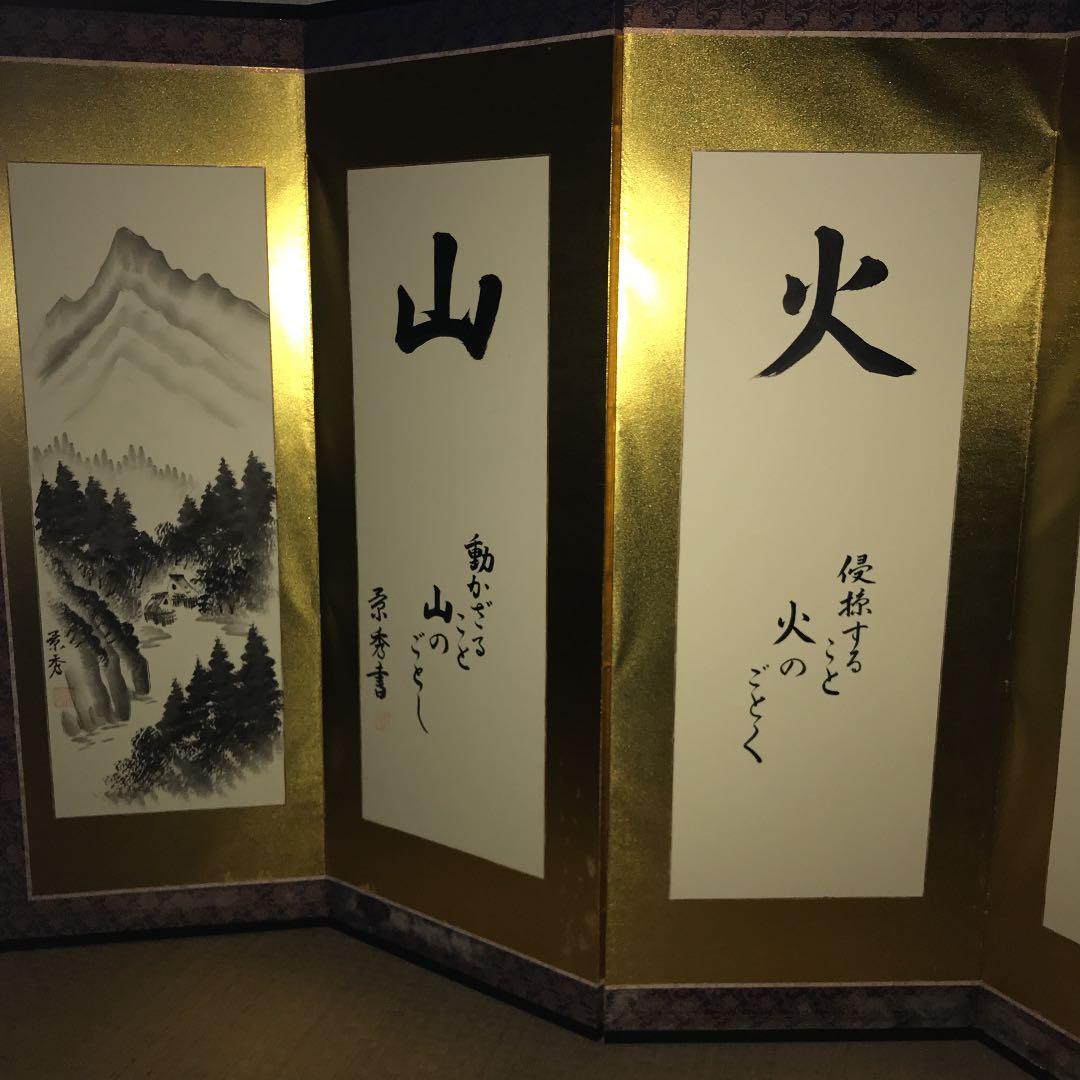 火
侵掠する
こと
火の
ごとく
山
動かざる
こと
山の
ごとし
景秀書
景秀